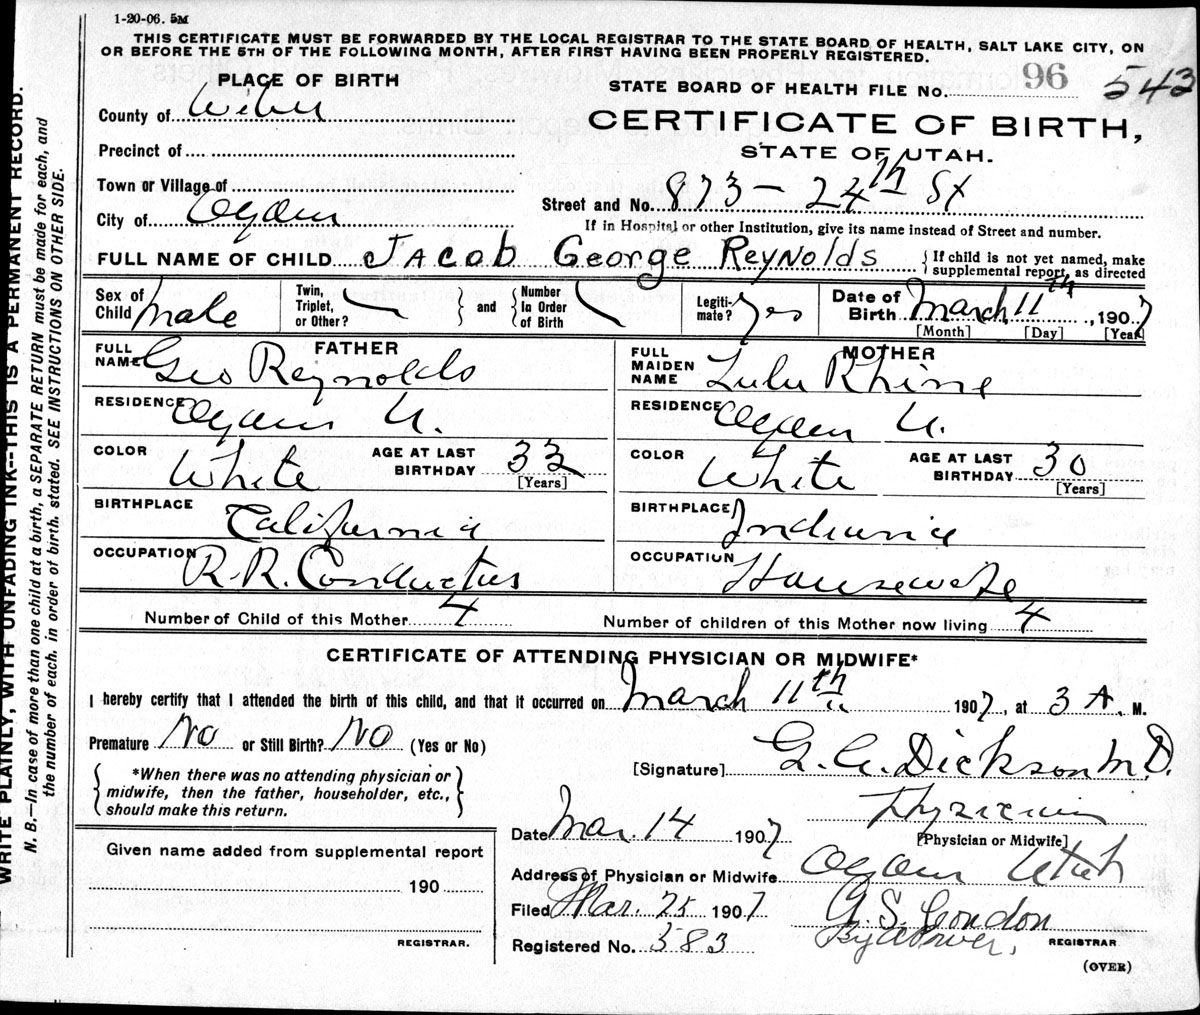 1-20-06. 5M
THIS CERTIFICATE MUST BE FORWARDED BY THE LOCAL REGISTRAR TO THE STATE BOARD OF HEALTH, SALT LAKE CITY, ON
OR BEFORE THE 5TH OF THE FOLLOWING MONTH, AFTER FIRST HAVING BEEN PROPERLY REGISTERED.
PLACE OF BIRTH
STATE BOARD OF HEALTH FILE No. 96 543
County of Weber
CERTIFICATE OF BIRTH,
Precinct of
STATE OF UTAH.
Town or Village of
Street and No. 873 - 24th St
City of Ogden
If in Hospital or other Institution, give its name instead of Street and number.
FULL NAME OF CHILD Jacob George Reynolds
If child is not yet named, make
supplemental report, as directed
Sex of Child Male
Twin, Triplet, or Other?
and
Number In Order of Birth
Legiti-mate? Yes
Date of Birth March 11th, 1907
[Month] [Day] [Year]
FATHER
FULL NAME Geo Reynolds
RESIDENCE Ogden U.
COLOR White
AGE AT LAST BIRTHDAY 33
[Years]
BIRTHPLACE California
OCCUPATION R.R. Conductor
MOTHER
FULL MAIDEN NAME Lulu Rhine
RESIDENCE Ogden U.
COLOR White
AGE AT LAST BIRTHDAY 30
[Years]
BIRTHPLACE Indiana
OCCUPATION Housewife
Number of Child of this Mother 4
Number of children of this Mother now living 4
CERTIFICATE OF ATTENDING PHYSICIAN OR MIDWIFE*
I hereby certify that I attended the birth of this child, and that it occurred on March 11th 1907, at 3 A. M.
Premature No or Still Birth? No (Yes or No)
[Signature] G. A. Dickson M.D.
*When there was no attending physician or
midwife, then the father, householder, etc.,
should make this return.
Physician
[Physician or Midwife]
Date Mar. 14 1907
Address of Physician or Midwife Ogden Utah
Filed Mar. 25 1907
G. S. Condon
By A Power.
REGISTRAR
Registered No. 583
(OVER)
Given name added from supplemental report
190
REGISTRAR.
WRITE PLAINLY, WITH UNFADING INK--THIS IS A PERMANENT RECORD.
N. B.—In case of more than one child at a birth, a SEPARATE RETURN must be made for each, and
the number of each, in order of birth, stated. SEE INSTRUCTIONS ON OTHER SIDE.